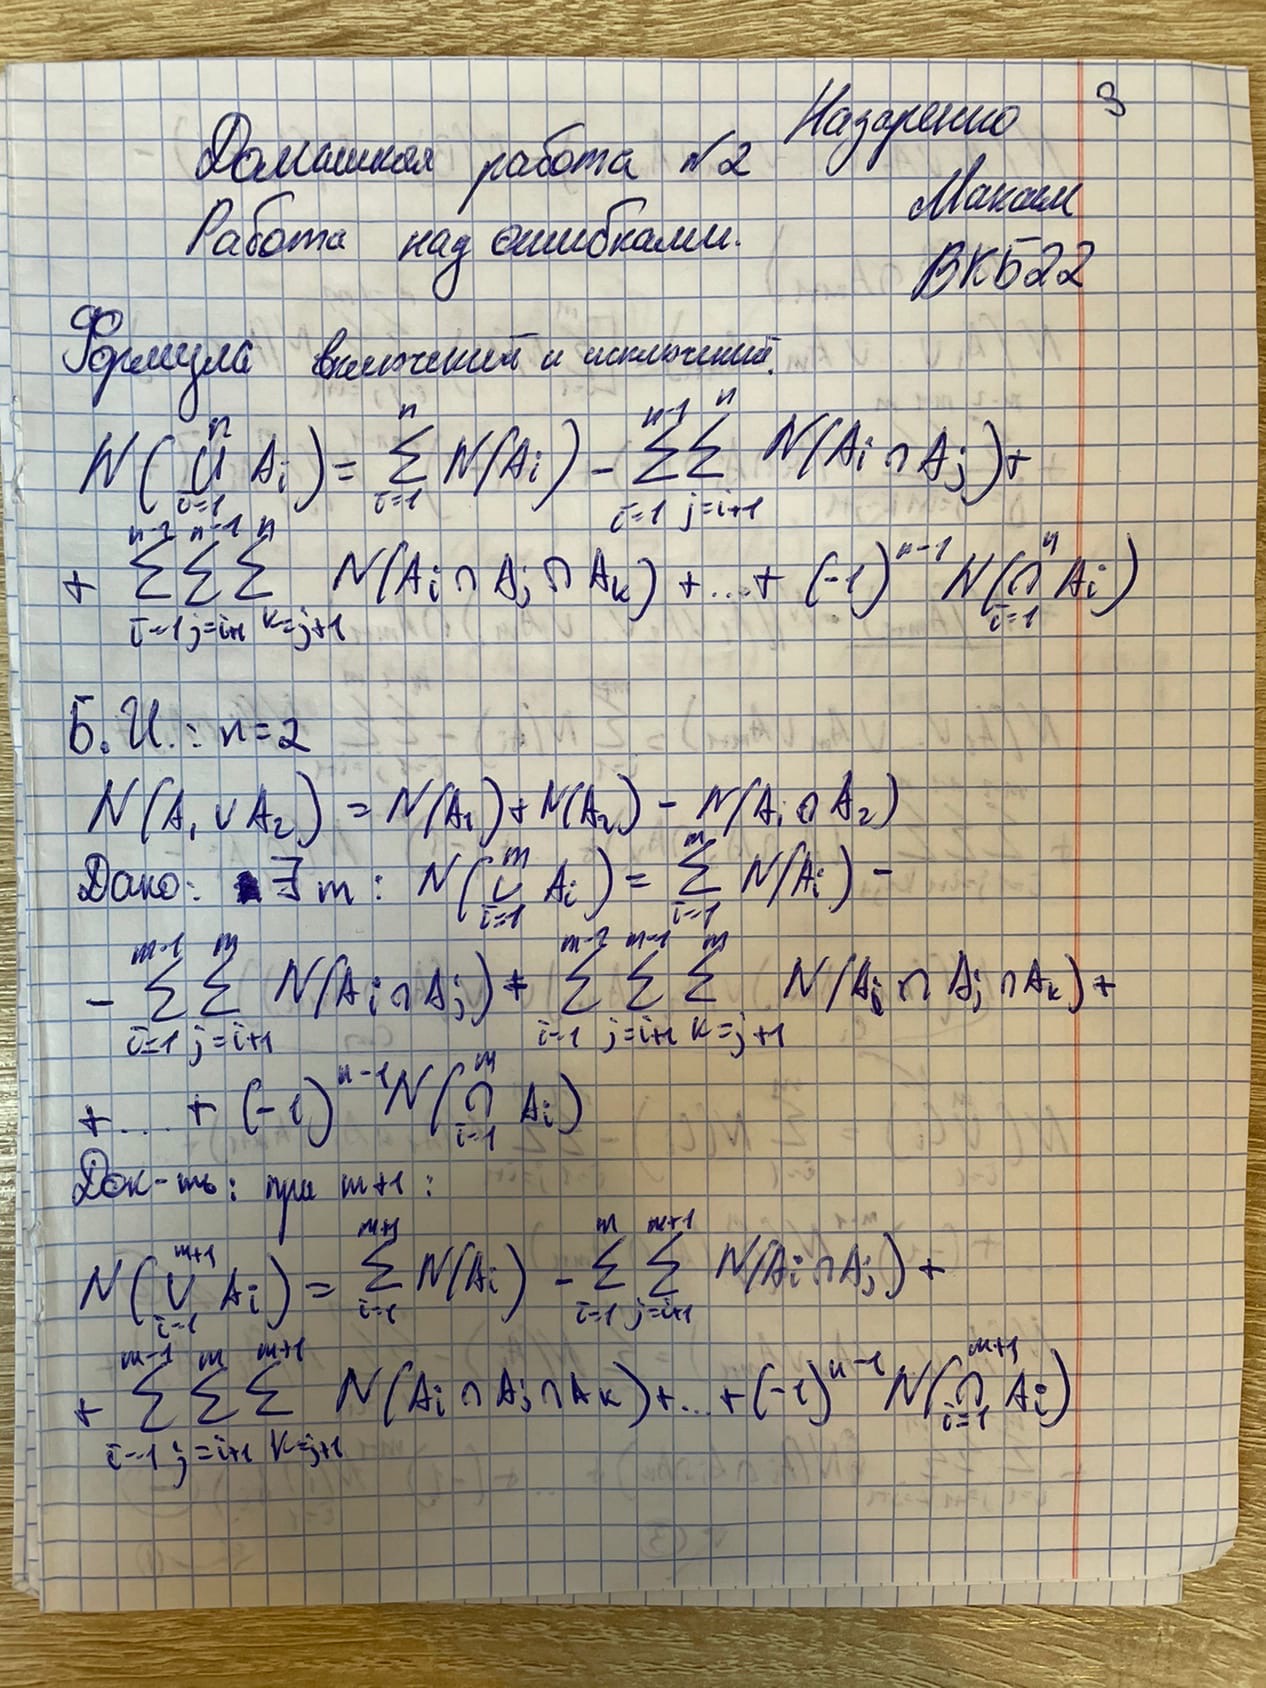 Назаренко 3
Домашняя работа №2
Максим
Работа над ошибками.
ВКБ22
Формула включений и исключений.
N(⋃_{i=1}^{n} A_i) = ∑_{i=1}^{n} N(A_i) - ∑_{i=1}^{n-1} ∑_{j=i+1}^{n} N(A_i ∩ A_j) +
+ ∑_{i=1}^{n-2} ∑_{j=i+1}^{n-1} ∑_{k=j+1}^{n} N(A_i ∩ A_j ∩ A_k) + ... + (-1)^{n-1} N(⋂_{i=1}^{n} A_i)
Б.И.: n=2
N(A_1 ∪ A_2) = N(A_1) + N(A_2) - N(A_1 ∩ A_2)
Дано: ∃ m: N(⋃_{i=1}^{m} A_i) = ∑_{i=1}^{m} N(A_i) -
- ∑_{i=1}^{m-1} ∑_{j=i+1}^{m} N(A_i ∩ A_j) + ∑_{i=1}^{m-2} ∑_{j=i+1}^{m-1} ∑_{k=j+1}^{m} N(A_i ∩ A_j ∩ A_k) +
+ ... + (-1)^{n-1} N(⋂_{i=1}^{m} A_i)
Док-ть: при m+1:
N(⋃_{i=1}^{m+1} A_i) = ∑_{i=1}^{m+1} N(A_i) - ∑_{i=1}^{m} ∑_{j=i+1}^{m+1} N(A_i ∩ A_j) +
+ ∑_{i=1}^{m-1} ∑_{j=i+1}^{m} ∑_{k=j+1}^{m+1} N(A_i ∩ A_j ∩ A_k) + ... + (-1)^{n-1} N(⋂_{i=1}^{m+1} A_i)